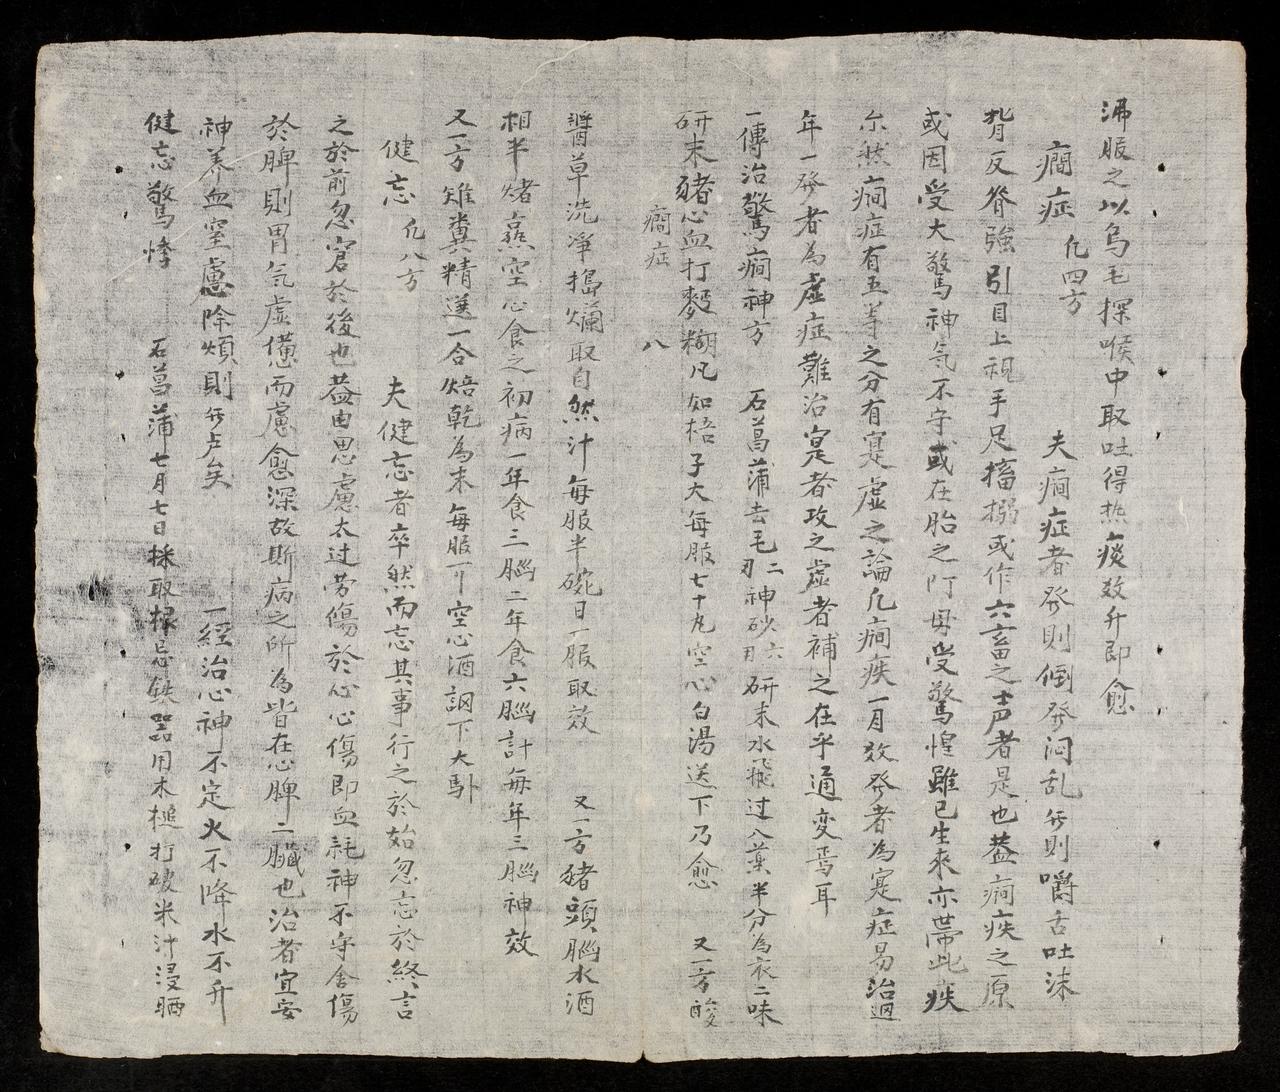 沸服之以烏毛探喉中取吐得热痰效升即愈
癎症 凢四方 夫癎症者発則倒発闷乱𠔃則嚼舌吐沫
背反脊強引目上視手足搐搦或作六畜之声者是也葢癎疾之原
或因受大驚神気不守或在胎之阿毋受驚惶雖已生來亦带此疾
尔然癎症有五等之分有寔虚之論凢癎疾一月效発者為寔症易治週
年一発者為虚症難治寔者攻之虚者補之在乎通变焉耳
一傳治驚癎神方 石菖蒲去毛二刄神砂六刄研末水飛过入葉半分為衣二味
研末豬心血打麪糊凡如梧子大每服七十丸空心白湯送下乃愈 又一方酸
癎症 八
醬草洗凈搗爛取自然汁每服半碗日一服取效 又一方豬頭腦水酒
相半烤蒸空心食之初病一年食三腦二年食六腦計每年三腦神效
又一方雉糞精選一合焙乾為末每服一丁空心酒調下大馿
健忘 凢八方 夫健忘者卒然而忘其事行之於始忽忘於終言
之於前忽窘於後也葢由思慮太过劳傷於心心傷即血耗神不守舍傷
於脾則胃気虚憊而慮愈深故斯病之所為皆在心脾二臟也治者宜安
神养血窒慮除煩則𠔃卢矣 一經治心神不定火不降水不升
健忘驚悸 石菖蒲七月七日採取根忌鉄器用木槌打破米汁浸晒